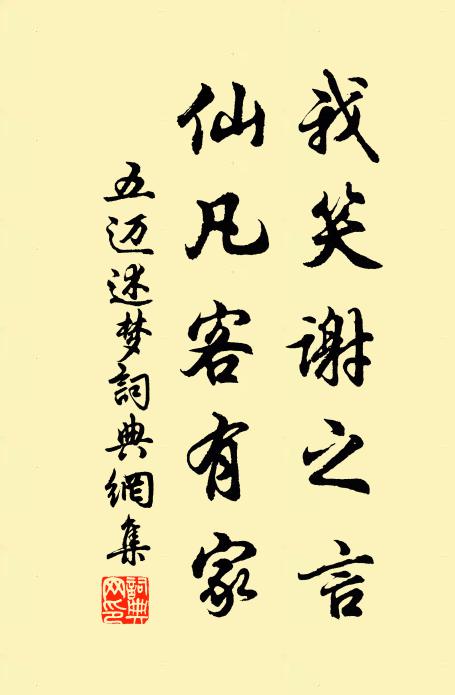 我笑谢之言
仙凡客有家
五迈迷梦詞典網集
詞典
网印